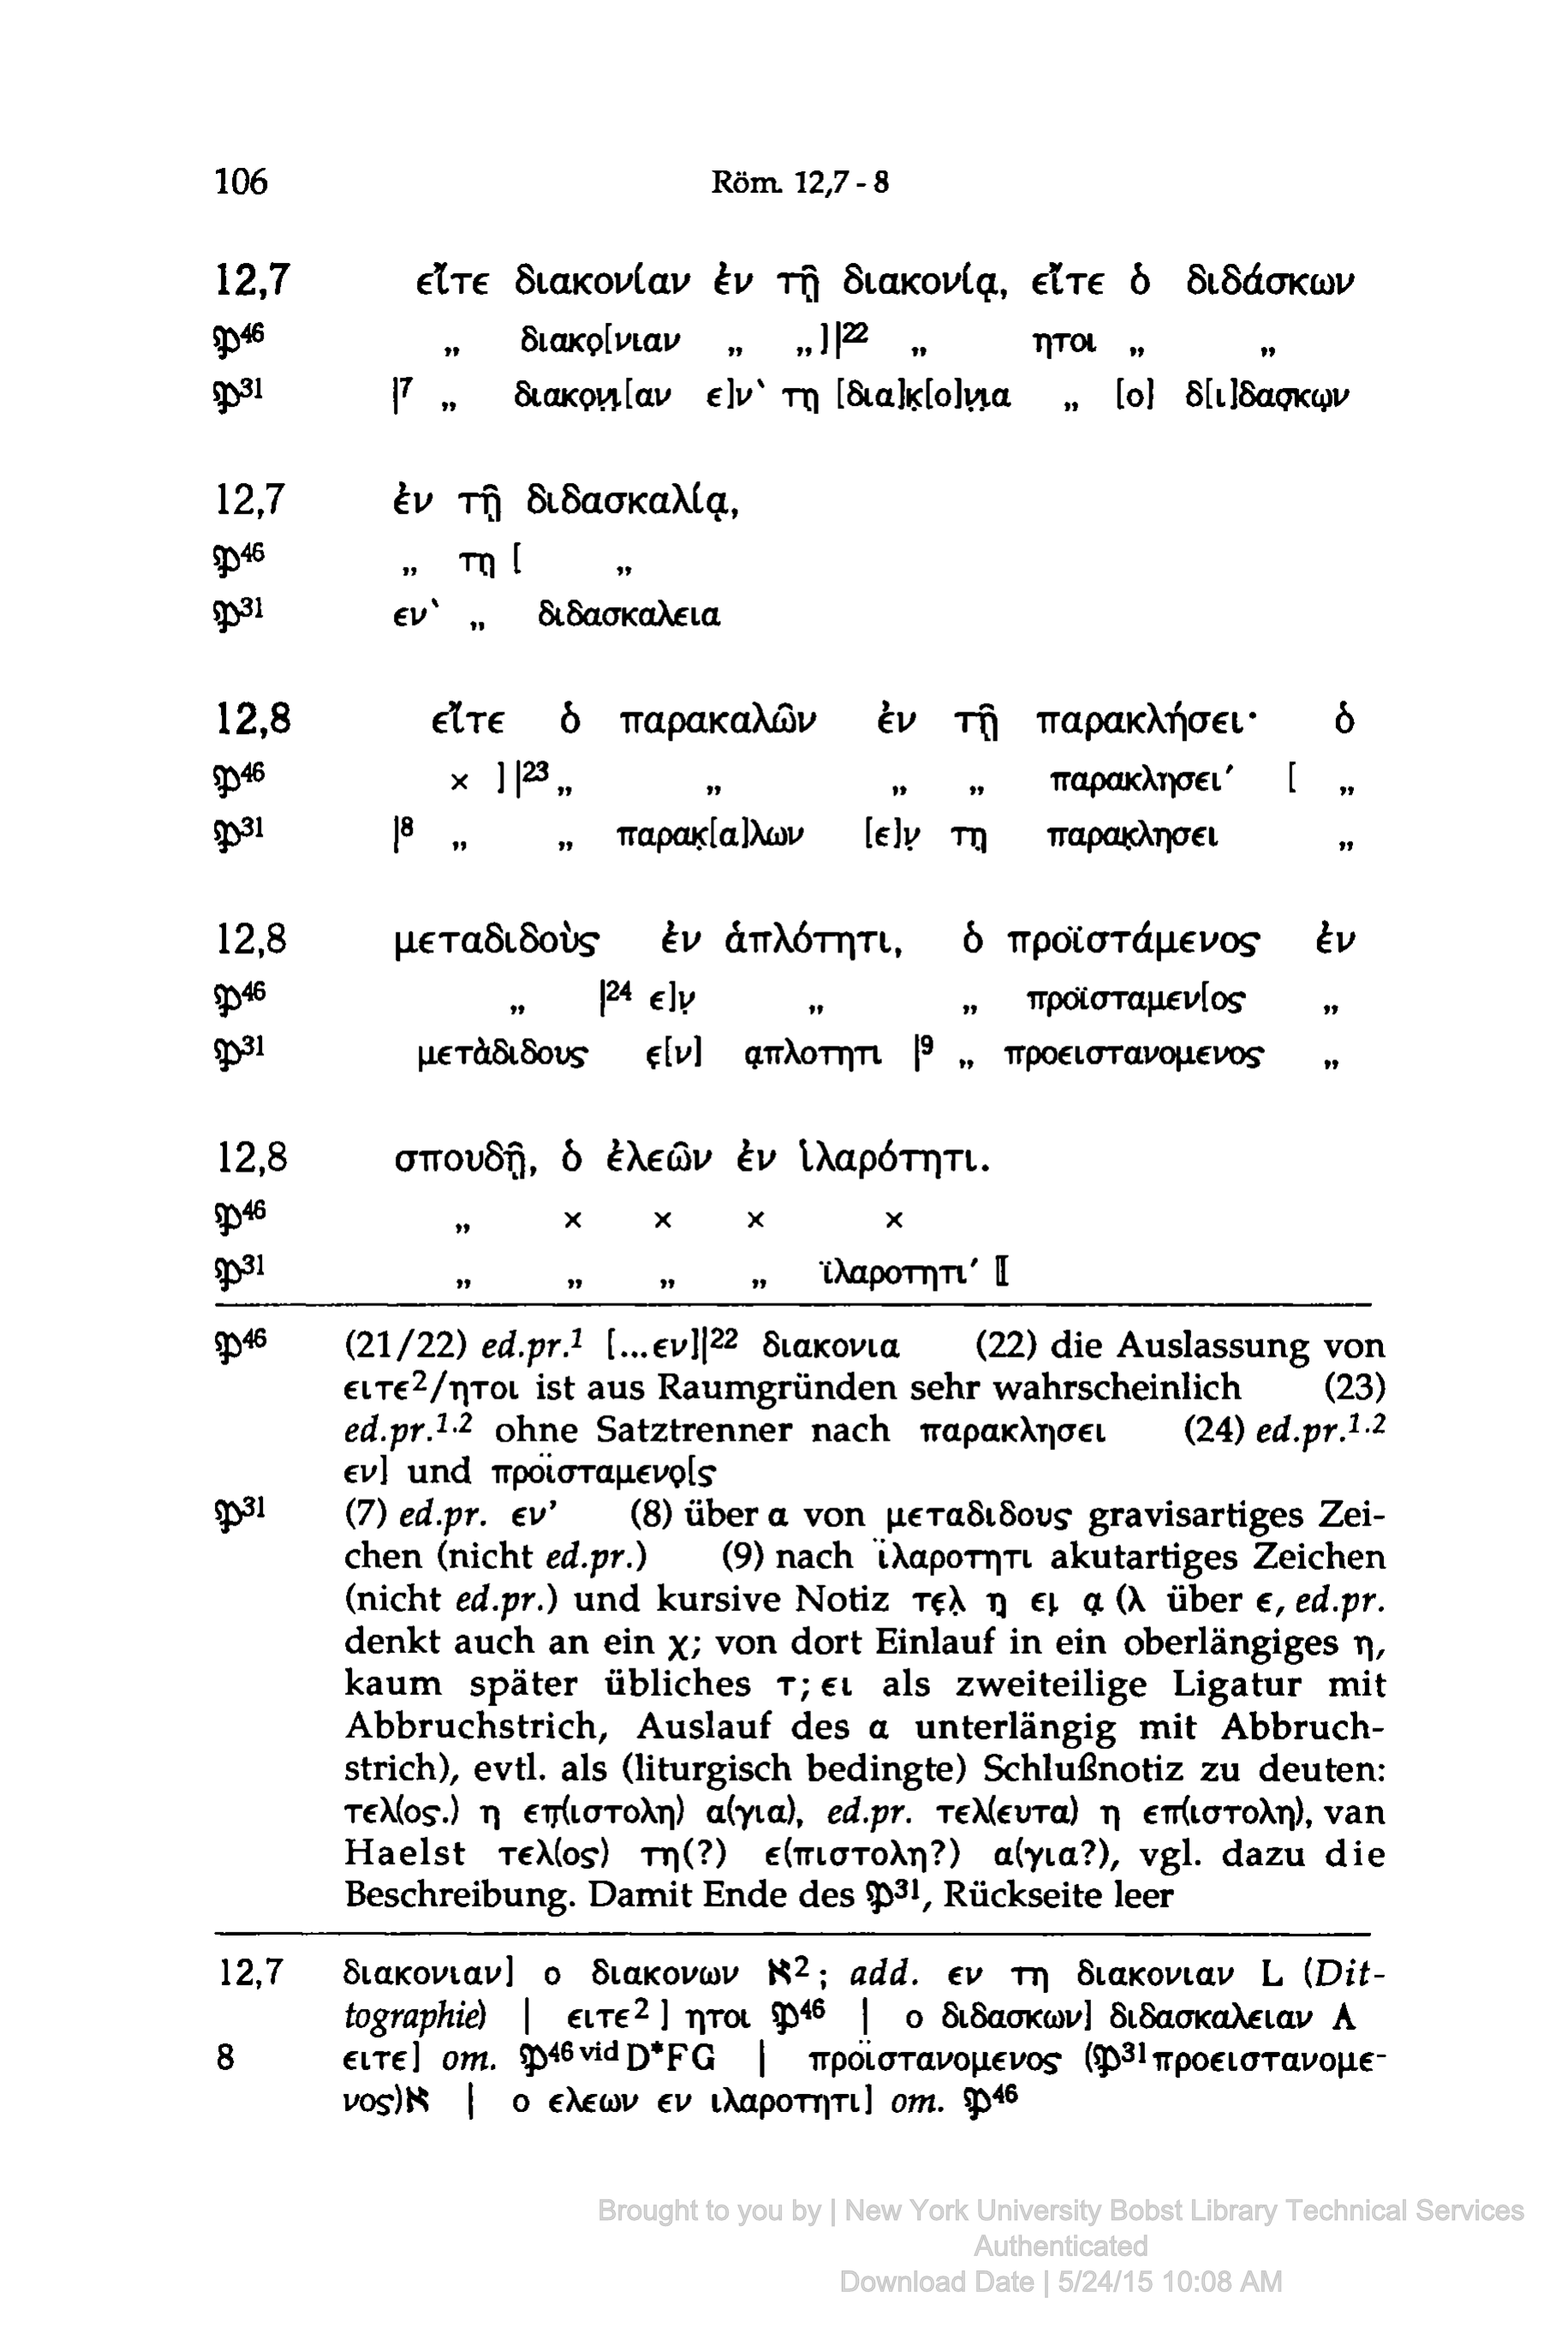 106 Röm. 12,7 - 8
12,7 εἴτε διακονίαν ἐν τῇ διακονίᾳ, εἴτε ὁ διδάσκων
𝔓46 „ διακο̣[νιαν „ „]|22 „ ητοι „ „
𝔓31 |7 „ διακο̣ν̣ι̣[αν ε]ν‵ τη [δια]κ̣[ο]ν̣ι̣α „ [ο] δ[ι]δασ̣κω̣ν
12,7 ἐν τῇ διδασκαλίᾳ,
𝔓46 „ τη̣ [ „
𝔓31 εν‵ „ διδασκαλεια
12,8 εἴτε ὁ παρακαλῶν ἐν τῇ παρακλήσει· ὁ
𝔓46 × ]|23 „ „ „ „ παρακλησει′ [ „
𝔓31 |8 „ „ παρακ̣[α]λων [ε]ν̣ τη̣ παρακ̣λησει „
12,8 μεταδιδοὺς ἐν ἁπλότητι, ὁ προϊστάμενος ἐν
𝔓46 „ |24 ε]ν̣ „ „ προϊσταμεν[ος „
𝔓31 μετὰδιδους ε̣[ν] α̣πλοτητι |9 „ προειστανομενος „
12,8 σπουδῇ, ὁ ἐλεῶν ἐν ἱλαρότητι.
𝔓46 „ × × × ×
𝔓31 „ „ „ „ ϊλαροτητι′ ⟦
𝔓46 (21/22) ed.pr.1 [...εν]|22 διακονια (22) die Auslassung von
ειτε2/ητοι ist aus Raumgründen sehr wahrscheinlich (23)
ed.pr.1.2 ohne Satztrenner nach παρακλησει (24) ed.pr.1.2
εν] und προϊσταμενο̣[ς
𝔓31 (7) ed.pr. εν’ (8) über α von μεταδιδους gravisartiges Zei-
chen (nicht ed.pr.) (9) nach ϊλαροτητι akutartiges Zeichen
(nicht ed.pr.) und kursive Notiz τε̣λ̣ η̣ ει̣ α̣ (λ über ε, ed.pr.
denkt auch an ein χ; von dort Einlauf in ein oberlängiges η,
kaum später übliches τ; ει als zweiteilige Ligatur mit
Abbruchstrich, Auslauf des α unterlängig mit Abbruch-
strich), evtl. als (liturgisch bedingte) Schlußnotiz zu deuten:
τελ(ος.) η επ̣(ιστολη) α(για), ed.pr. τελ(ευτα) η επ(ιστολη), van
Haelst τελ(ος) τη(?) ε(πιστολη?) α(για?), vgl. dazu die
Beschreibung. Damit Ende des 𝔓31, Rückseite leer
12,7 διακονιαν] ο διακονων ℵ2; add. εν τη διακονιαν L (Dit-
tographie) | ειτε2] ητοι 𝔓46 | ο διδασκων] διδασκαλειαν A
8 ειτε] om. 𝔓46 vid D*FG | προϊστανομενος (𝔓31 προειστανομε-
νος)ℵ | ο ελεων εν ιλαροτητι] om. 𝔓46
Brought to you by | New York University Bobst Library Technical Services
Authenticated
Download Date | 5/24/15 10:08 AM